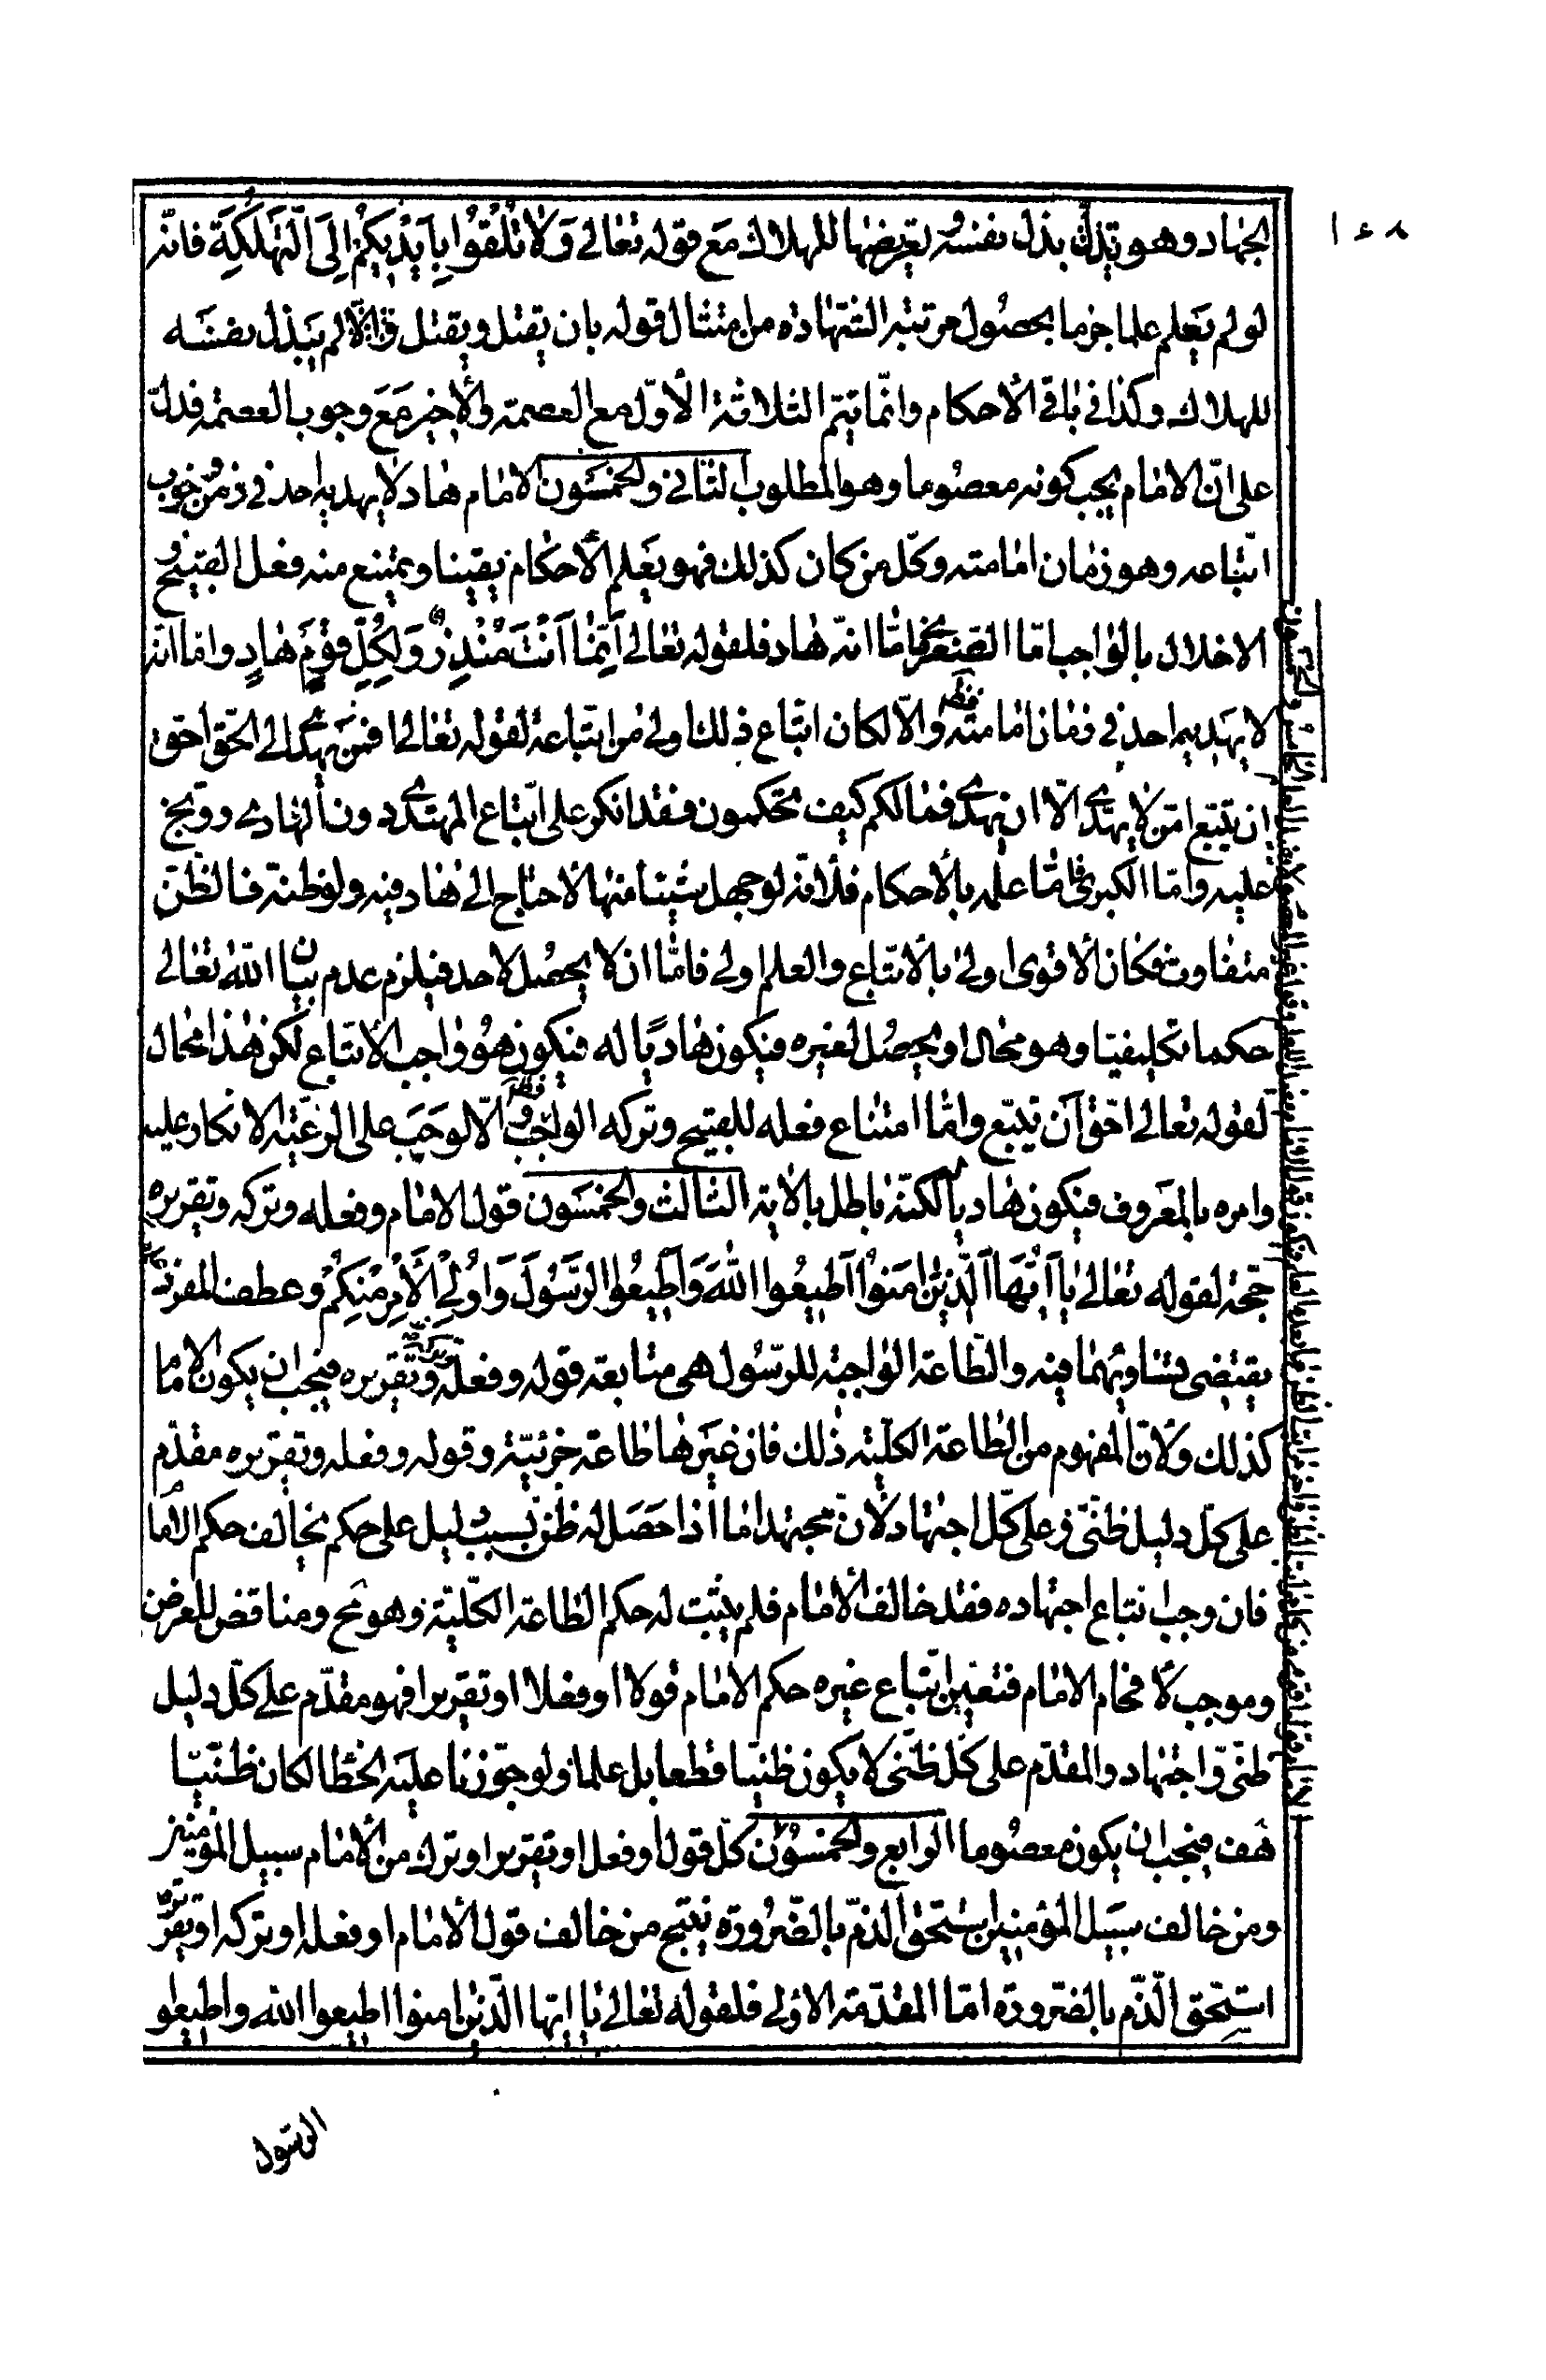 ١٤٨
الجهاد وهو بذل نفسه وتعريضها للهلاك مع قوله تعالى وَلَا تُلْقُوا بِأَيْدِيكُمْ إِلَى التَّهْلُكَةِ فانّه
لو لم يعلم علما جزما بحصول مرتبة الشهادة من امتثال قوله بان يقتل ويقتل والّا لم يبذل نفسه
للهلاك وكذا في باقي الأحكام وانّما يتم الثلاثة الأوّل مع العصمة والأخير مع وجوب العصمة فدلّ
على انّ الامام يجب كونه معصوما وهو المطلوب الثاني والخمسون الامام هاد لا يهديه احد في زمن وجوب
اتّباعه وهو زمان امامته وكل من كان كذلك فهو يعلم الأحكام يقينا ويمتنع منه فعل القبيح و
الاخلال بالواجب امّا الصغرى فامّا انّه هاد فلقوله تعالى إِنَّمَا أَنْتَ مُنْذِرٌ وَلِكُلِّ قَوْمٍ هَادٍ واما انّه
لا يهديه احد في زمان امامته فظ والّا لكان اتّباع ذلك اولى من اتّباعه لقوله تعالى افمن يهدى الى الحق احق
ان يتبع امّن لا يهتدى الّا ان يهدى فما لكم كيف تحكمون فقد انكر على اتباع المهتدى دون الهادي ووبخ
عليه وامّا الكبرى فامّا علمه بالأحكام فلأنه لو جهل شيئا منها لاحتاج الى هاد فيه ولو ظنه فالظّن
متفاوت فكان الأقوى اولى بالأتباع والعلم اولى فامّا ان لا يحصل لاحد فيلزم عدم بيان الله تعالى
حكما تكليفيّا وهو محال او يحصل لغيره فيكون هاديًا له فيكون هو واجب الأتباع لكن هذا محال
لقوله تعالى احق أن يتبع وامّا امتناع فعله للقبيح وتركه الواجب فظ والّا لوجب على الرعيّة الانكار عليه
وامره بالمعروف فيكون هاديا لكنّه باطل بالأية الثالث والخمسون قول الامام وفعله وتركه وتقريره
حجّة لقوله تعالى يَا أَيُّهَا الَّذِينَ آمَنُوا أَطِيعُوا اللَّهَ وَأَطِيعُوا الرَّسُولَ وَأُولِي الْأَمْرِ مِنْكُمْ وعطف المفرد
يقتضى تساويهما فيه والطّاعة الواجبة للرّسول هى متابعة قوله وفعله وتركه وتقريره فيجب ان يكون الامام
كذلك ولانّ المفهوم من الطاعة الكلّية ذلك فان غيرها طاعة جزئيّة وقوله وفعله وتقريره مقدّم
على كل دليل ظنّى وعلى كلّ اجتهاد لانّ مجتهدا ما اذا حصل له ظن بسبب دليل على حكم يخالف حكم الامام
فان وجب اتباع اجتهاده فقد خالف الأمام فلم يثبت له حكم الطاعة الكلّية وهو مح ومناقض للغرض
وموجب لأفحام الامام فتعين اتّباع غيره حكم الامام قولا او فعلا او تقريرا فهو مقدّم على كلّ دليل
ظنّى واجتهاد والمقدّم على كلّ ظنّى لا يكون ظنيا قطعا بل علما ولو جوّزنا عليه الخطا لكان ظنّيّا
هف فيجب ان يكون معصوما الرابع والخمسون كلّ قول او فعل او تقرير او ترك من الأمام سبيل المؤمنين
ومن خالف سبيل المؤمنين استحق الذمّ بالضّرورة ينتج من خالف قول الأمام او فعله او تركه او تقريره
استحق الذّم بالضرورة امّا المقدّمة الاولى فلقوله تعالى يا ايّها الّذين امنوا اطيعوا الله واطيعوا
الرسول